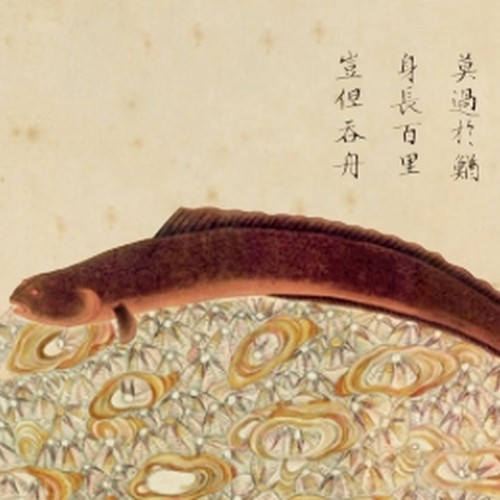 莫過於鰌
身長百里
豈但吞舟